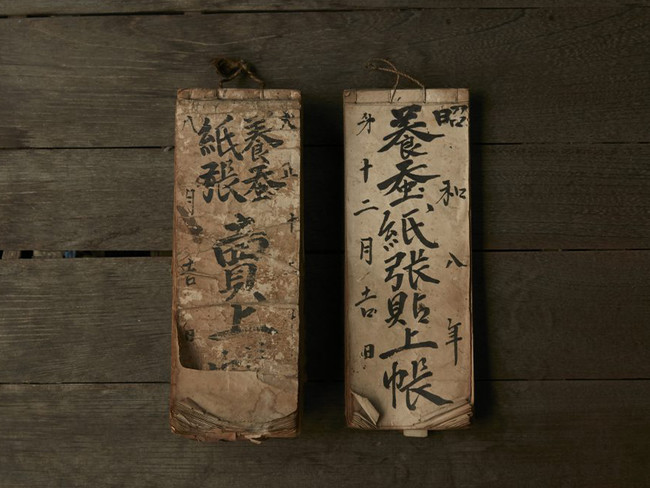 昭和八年
養蚕紙張貼上帳
十二月吉日
大正十
養蚕
紙張
賣上帳
八月吉日